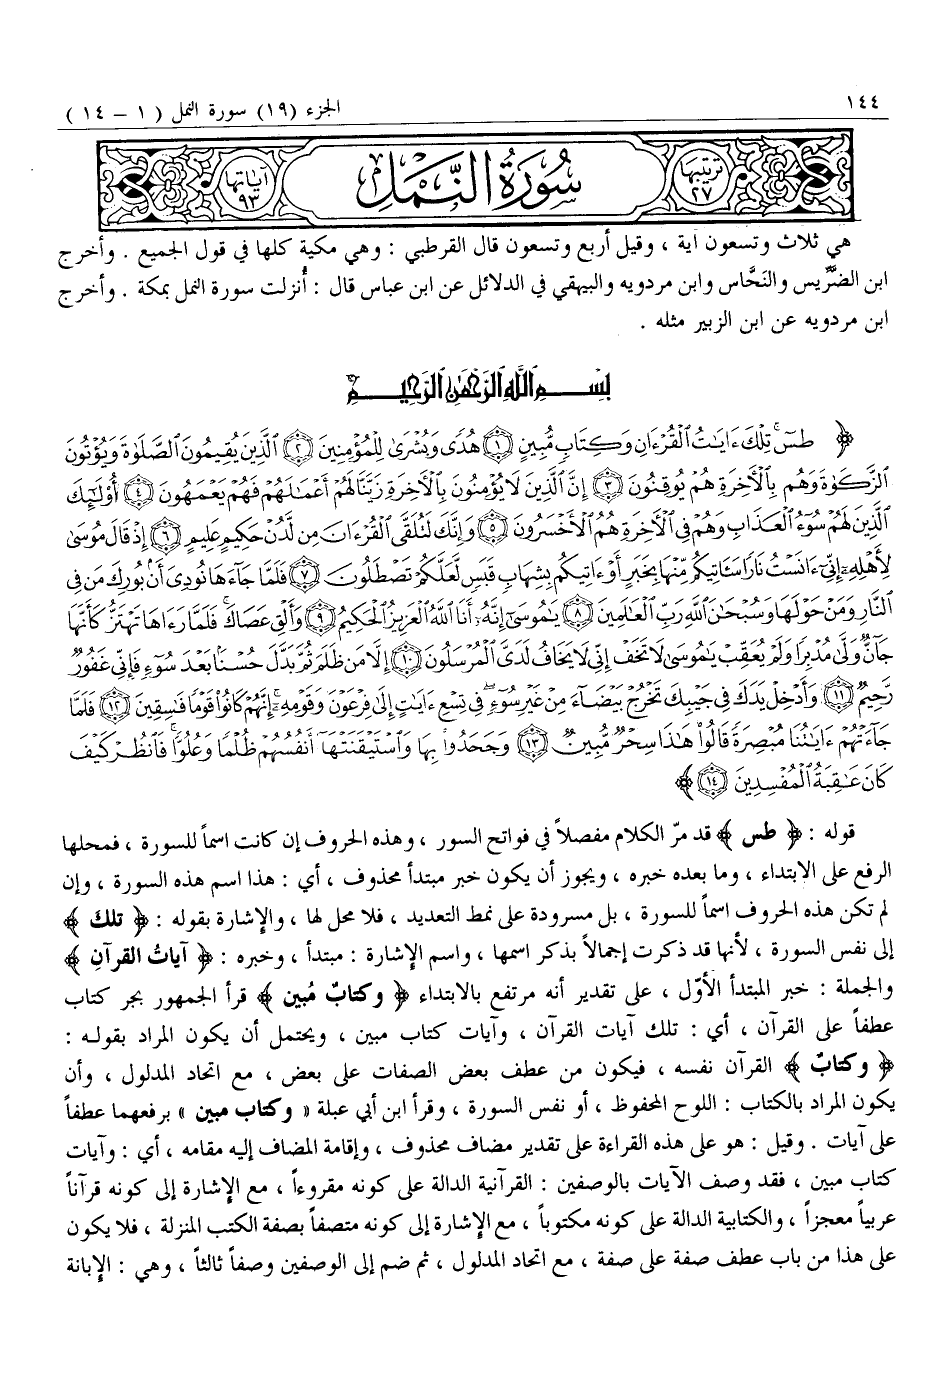 ١٤٤
الجزء (١٩) سورة النمل ( ١ – ١٤ )
ترتيبها ٢٧
سُورَةُ النَّمْلِ
آياتها ٩٣
هي ثلاث وتسعون آية ، وقيل أربع وتسعون قال القرطبي : وهي مكية كلها في قول الجميع . وأخرج
ابن الضُّرَيس والنَحَّاس وابن مردويه والبيهقي في الدلائل عن ابن عباس قال : أُنزلت سورة النمل بمكة . وأخرج
ابن مردويه عن ابن الزبير مثله .
بِسْمِ اللَّهِ الرَّحْمَٰنِ الرَّحِيمِ
﴿ طسٓ ۚ تِلْكَ ءَايَٰتُ ٱلْقُرْءَانِ وَكِتَابٍ مُّبِينٍ ۝١ هُدًى وَبُشْرَىٰ لِلْمُؤْمِنِينَ ۝٢ ٱلَّذِينَ يُقِيمُونَ ٱلصَّلَوٰةَ وَيُؤْتُونَ
ٱلزَّكَوٰةَ وَهُم بِٱلْأَخِرَةِ هُمْ يُوقِنُونَ ۝٣ إِنَّ ٱلَّذِينَ لَا يُؤْمِنُونَ بِٱلْأَخِرَةِ زَيَّنَّا لَهُمْ أَعْمَٰلَهُمْ فَهُمْ يَعْمَهُونَ ۝٤ أُوْلَٰٓئِكَ
ٱلَّذِينَ لَهُمْ سُوٓءُ ٱلْعَذَابِ وَهُمْ فِي ٱلْأَخِرَةِ هُمُ ٱلْأَخْسَرُونَ ۝٥ وَإِنَّكَ لَتُلَقَّى ٱلْقُرْءَانَ مِن لَّدُنْ حَكِيمٍ عَلِيمٍ ۝٦ إِذْ قَالَ مُوسَىٰ
لِأَهْلِهِۦٓ إِنِّيٓ ءَانَسْتُ نَارًا سَـَٔاتِيكُم مِّنْهَا بِخَبَرٍ أَوْ ءَاتِيكُم بِشِهَابٍ قَبَسٍ لَّعَلَّكُمْ تَصْطَلُونَ ۝٧ فَلَمَّا جَآءَهَا نُودِيَ أَنۢ بُورِكَ مَن فِي
ٱلنَّارِ وَمَنْ حَوْلَهَا وَسُبْحَٰنَ ٱللَّهِ رَبِّ ٱلْعَٰلَمِينَ ۝٨ يَٰمُوسَىٰٓ إِنَّهُۥٓ أَنَا ٱللَّهُ ٱلْعَزِيزُ ٱلْحَكِيمُ ۝٩ وَأَلْقِ عَصَاكَ ۚ فَلَمَّا رَءَاهَا تَهْتَزُّ كَأَنَّهَا
جَآنٌّ وَلَّىٰ مُدْبِرًا وَلَمْ يُعَقِّبْ ۚ يَٰمُوسَىٰ لَا تَخَفْ إِنِّي لَا يَخَافُ لَدَيَّ ٱلْمُرْسَلُونَ ۝١٠ إِلَّا مَن ظَلَمَ ثُمَّ بَدَّلَ حُسْنًۢا بَعْدَ سُوٓءٍ فَإِنِّي غَفُورٌ
رَّحِيمٌ ۝١١ وَأَدْخِلْ يَدَكَ فِي جَيْبِكَ تَخْرُجْ بَيْضَآءَ مِنْ غَيْرِ سُوٓءٍ ۖ فِي تِسْعِ ءَايَٰتٍ إِلَىٰ فِرْعَوْنَ وَقَوْمِهِۦٓ ۚ إِنَّهُمْ كَانُوا۟ قَوْمًا فَٰسِقِينَ ۝١٢ فَلَمَّا
جَآءَتْهُمْ ءَايَٰتُنَا مُبْصِرَةً قَالُوا۟ هَٰذَا سِحْرٌ مُّبِينٌ ۝١٣ وَجَحَدُوا۟ بِهَا وَٱسْتَيْقَنَتْهَآ أَنفُسُهُمْ ظُلْمًا وَعُلُوًّا ۚ فَٱنظُرْ كَيْفَ
كَانَ عَٰقِبَةُ ٱلْمُفْسِدِينَ ۝١٤ ﴾
قوله : ﴿ طس ﴾ قد مرّ الكلام مفصلاً في فواتح السور ، وهذه الحروف إن كانت اسماً للسورة ، فمحلها
الرفع على الابتداء ، وما بعده خبره ، ويجوز أن يكون خبر مبتدأ محذوف ، أي : هذا اسم هذه السورة ، وإن
لم تكن هذه الحروف اسماً للسورة ، بل مسرودة على نمط التعديد ، فلا محل لها ، والإشارة بقوله : ﴿ تلك ﴾
إلى نفس السورة ، لأنها قد ذكرت إجمالاً بذكر اسمها ، واسم الإشارة : مبتدأ ، وخبره : ﴿ آياتُ القرآنِ ﴾
والجملة : خبر المبتدأ الأوّل ، على تقدير أنه مرتفع بالابتداء ﴿ وكتابٌ مُبين ﴾ قرأ الجمهور بجر كتاب
عطفاً على القرآن ، أي : تلك آيات القرآن ، وآيات كتاب مبين ، ويحتمل أن يكون المراد بقوله :
﴿ وكتابٌ ﴾ القرآن نفسه ، فيكون من عطف بعض الصفات على بعض ، مع اتحاد المدلول ، وأن
يكون المراد بالكتاب : اللوح المحفوظ ، أو نفس السورة ، وقرأ ابن أبي عبلة « وكتاب مبين » برفعهما عطفاً
على آيات . وقيل : هو على هذه القراءة على تقدير مضاف محذوف ، وإقامة المضاف إليه مقامه ، أي : وآيات
كتاب مبين ، فقد وصف الآيات بالوصفين : القرآنية الدالة على كونه مقروءاً ، مع الإشارة إلى كونه قرآناً
عربياً معجزاً ، والكتابية الدالة على كونه مكتوباً ، مع الإشارة إلى كونه متصفاً بصفة الكتب المنزلة ، فلا يكون
على هذا من باب عطف صفة على صفة ، مع اتحاد المدلول ، ثم ضم إلى الوصفين وصفاً ثالثاً ، وهي : الإبانة